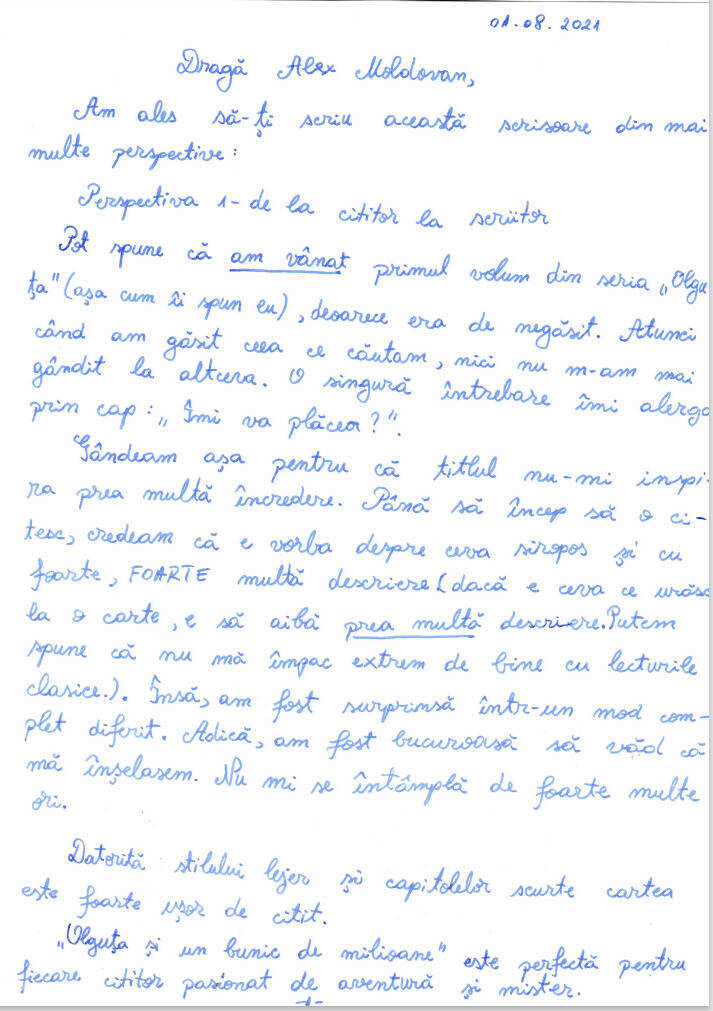 01.08.2021
Dragă Alex Moldovan,
Am ales să-ți scriu această scrisoare din mai
multe perspective:
Perspectiva 1-de la cititor la scriitor
Pot spune că am vânat primul volum din seria „Olgu-
ța"(așa cum îi spun eu), deoarece era de negăsit. Atunci
când am găsit ceea ce căutam, nici nu m-am mai
gândit la altceva. O singură întrebare îmi alerga
prin cap: „Îmi va plăcea?".
Gândeam așa pentru că titlul nu-mi inspi-
ra prea multă încredere. Până să încep să o ci-
tesc, credeam că e vorba despre ceva siropos și cu
foarte, FOARTE multă descriere(dacă e ceva ce urăsc
la o carte, e să aibă prea multă descriere.Putem
spune că nu mă împac extrem de bine cu lecturile
clasice.). Însă, am fost surprinsă într-un mod com-
plet diferit. Adică, am fost bucuroasă să văd că
mă înșelasem. Nu mi se întâmplă de foarte multe
ori.
Datorită stilului lejer și capitolelor scurte cartea
este foarte ușor de citit.
„Olguța și un bunic de milioane" este perfectă pentru
fiecare cititor pasionat de aventură și mister.